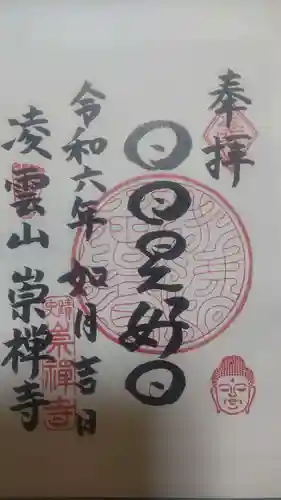 奉拝
日日是好日
令和六年 如月吉日
凌雲山 崇禅寺
崇禅寺